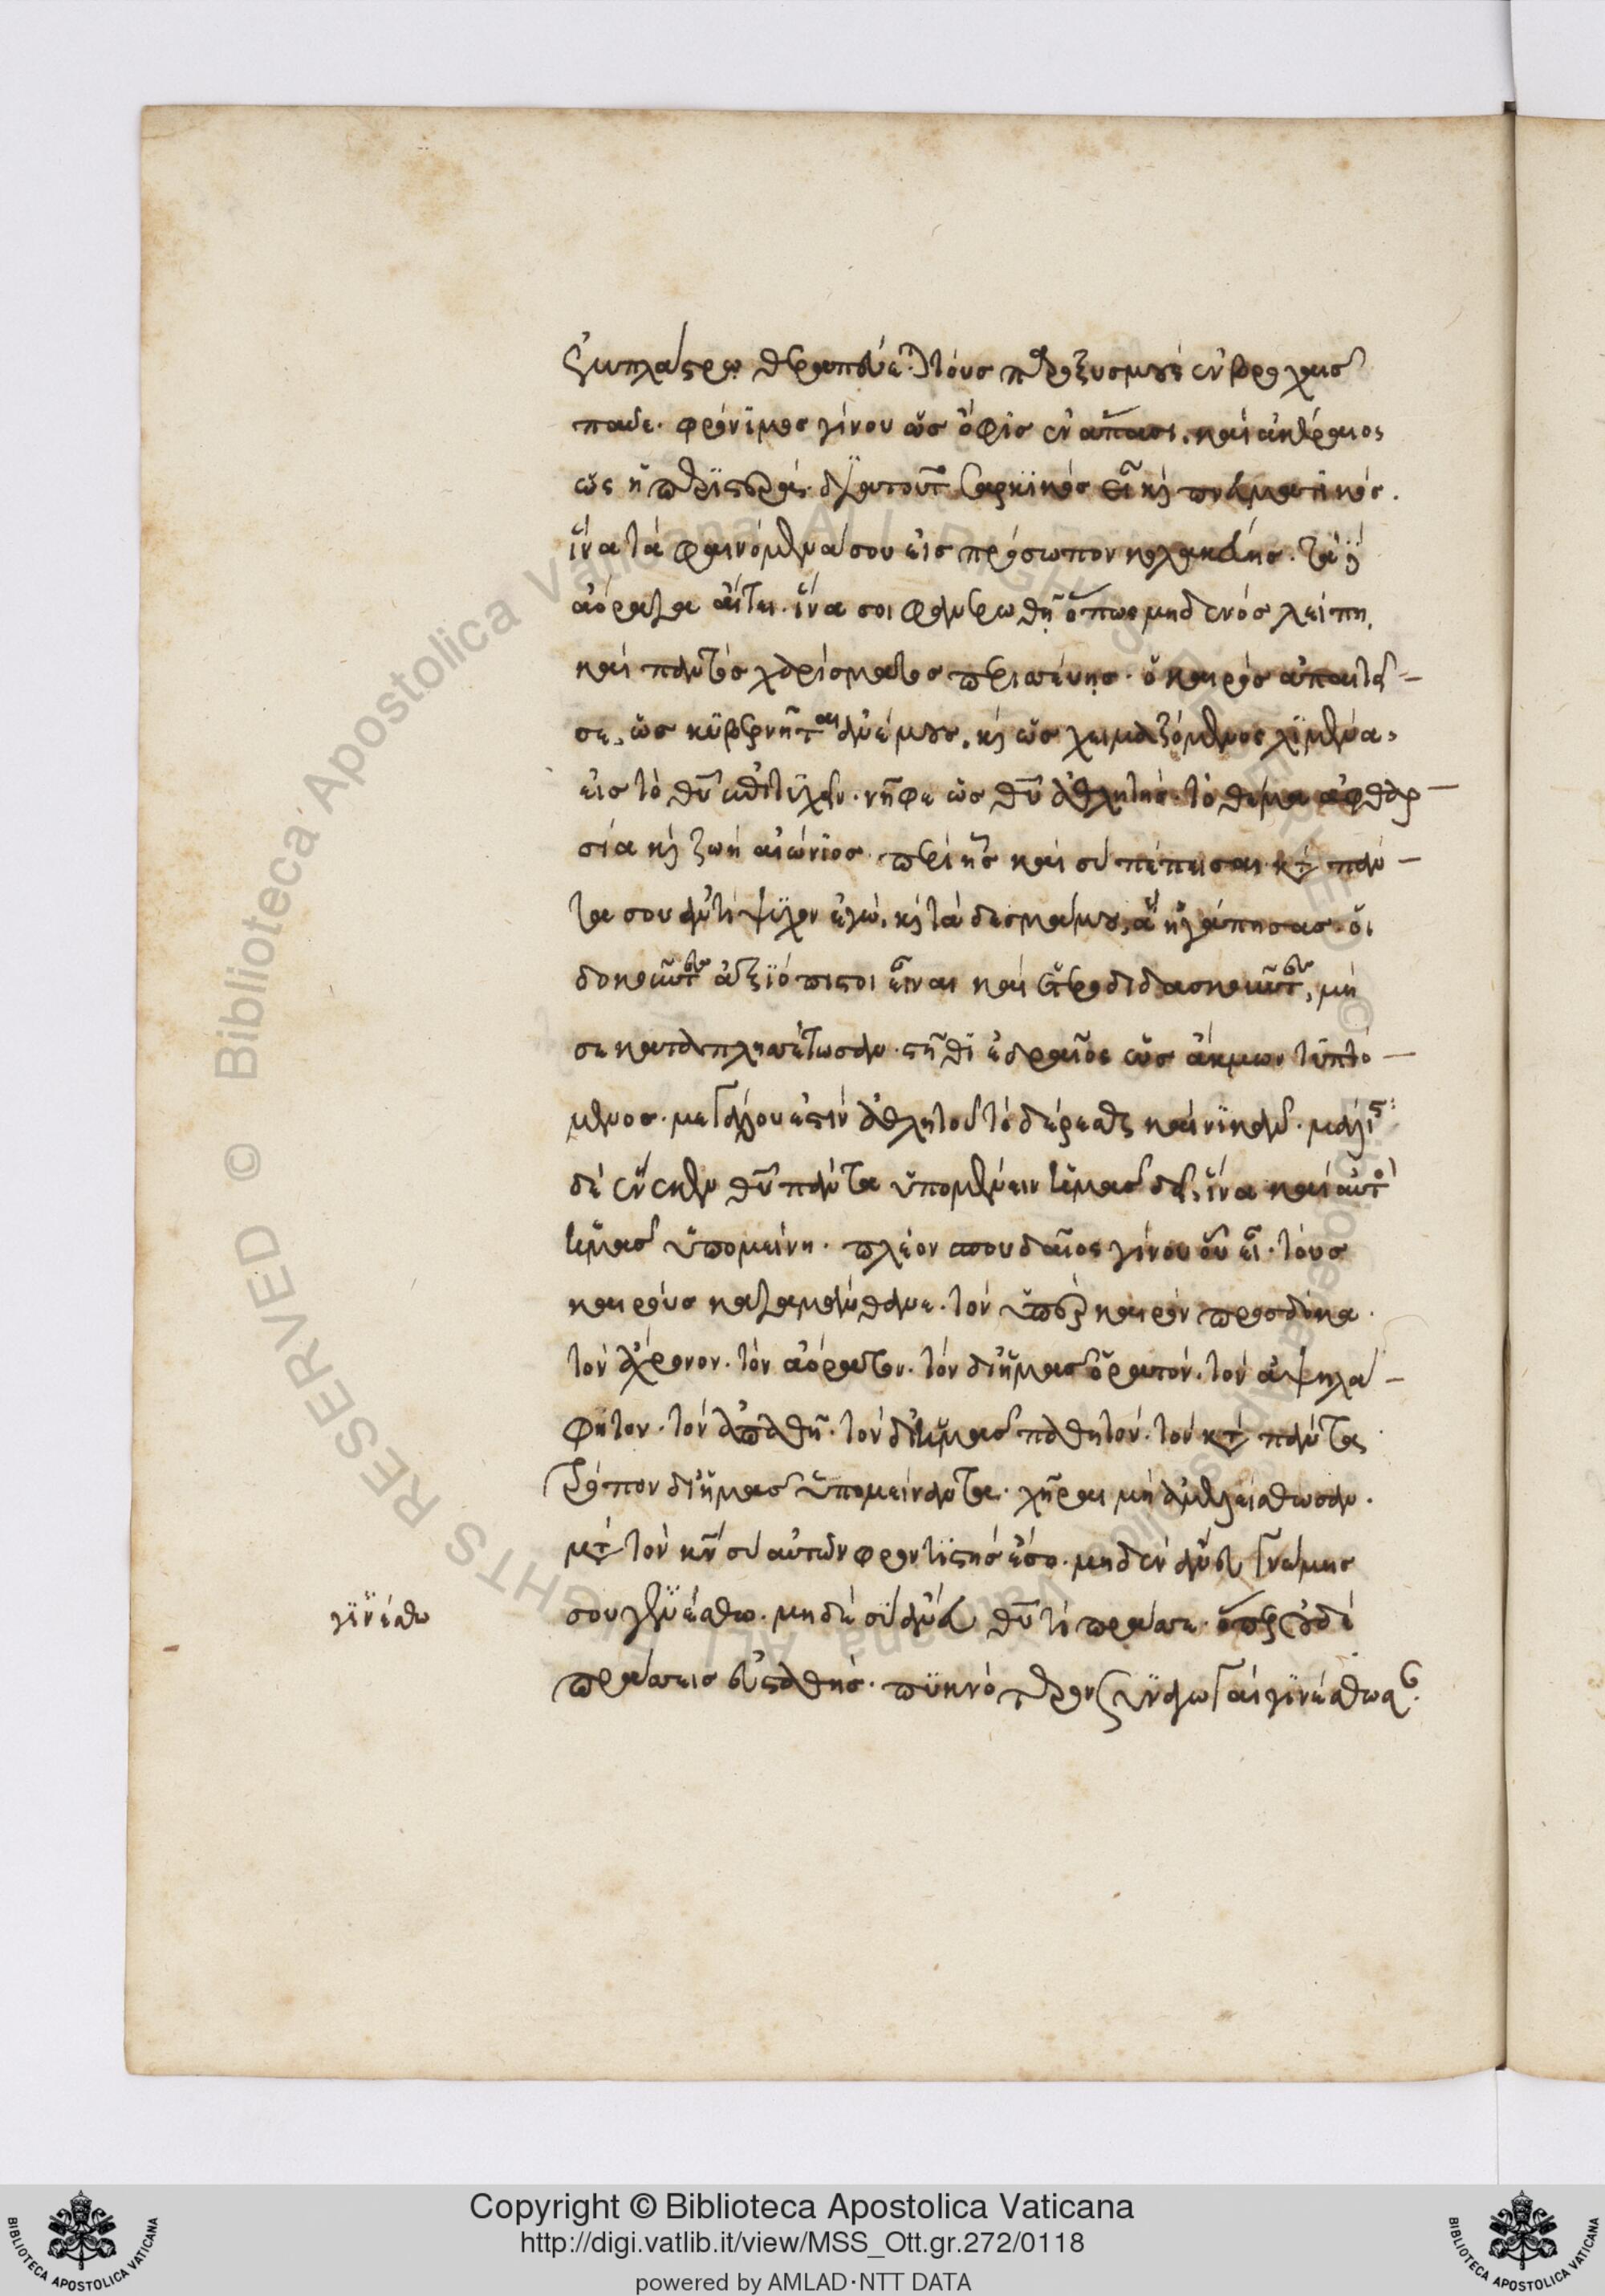 ἐμπλάστρῳ θεραπεύεται. τοὺς παροξυσμοὺς ἐμβροχαῖς
παῦε. φρόνιμος γίνου ὡς ὄφις ἐν ἅπασι. καὶ ἀκέραιος
ὡς ἡ περιστερά. διὰ τοῦτο σαρκικὸς εἶ καὶ πνευματικός.
ἵνα τὰ φαινόμενά σου εἰς πρόσωπον κολακεύῃς. τὰ δὲ
ἀόρατα αἴτει. ἵνα σοι φανερωθῇ ὅπως μηδενὸς λείπῃ.
καὶ παντὸς χαρίσματος περισσεύῃς. ὁ καιρὸς ἀπαιτεῖ
σε, ὡς κυβερνῆται ἀνέμους, καὶ ὡς χειμαζόμενος λιμένα,
εἰς τὸ θῦ ἐπιτυχεῖν. νῆφε ὡς θῦ ἀθλητής. τὸ θέμα ἀφθαρ
σία καὶ ζωὴ αἰώνιος. περὶ ἧς καὶ σὺ πέπεισαι. κατὰ πάν
τα σου ἀντίψυχον ἐγώ, καὶ τὰ δεσμά μου, ἃ ἠγάπησας. οἱ
δοκοῦντες ἀξιόπιστοι εἶναι καὶ ἑτεροδιδασκαλοῦντες, μή
σε καταπλησσέτωσαν. στῆθι ἑδραῖος ὡς ἄκμων τυπτό
μενος. μεγάλου ἐστὶν ἀθλητοῦ τὸ δέρεσθαι καὶ νικᾶν. μάλιστα
δὲ ἕνεκεν θῦ πάντα ὑπομένειν ἡμᾶς δεῖ, ἵνα καὶ αὐτὸς
ἡμᾶς ὑπομείνῃ. πλέον σπουδαῖος γίνου οὗ εἶ. τοὺς
καιροὺς καταμάνθανε. τὸν ὑπὲρ καιρὸν προσδόκα.
τὸν ἄχρονον. τὸν ἀόρατον. τὸν δι' ἡμᾶς ὁρατόν. τὸν ἀψηλά
φητον. τὸν ἀπαθῆ. τὸν δι' ἡμᾶς παθητόν. τὸν κατὰ πάντα
τρόπον δι' ἡμᾶς ὑπομείναντα. χῆραι μὴ ἀμελείσθωσαν.
μετὰ τὸν κν̄ σὺ αὐτῶν φροντιστὴς ἔσο. μηδὲν ἄνευ γνώμης
σου γενέσθω. μηδὲ σὺ ἄνευ θῦ τι πράσσε. ὅπερ οὐδὲ
πράσσεις εὐσταθής. πυκνότερον συναγωγαὶ γινέσθωσαν.
γινέσθω
Copyright © Biblioteca Apostolica Vaticana
http://digi.vatlib.it/view/MSS_Ott.gr.272/0118
powered by AMLAD·NTT DATA